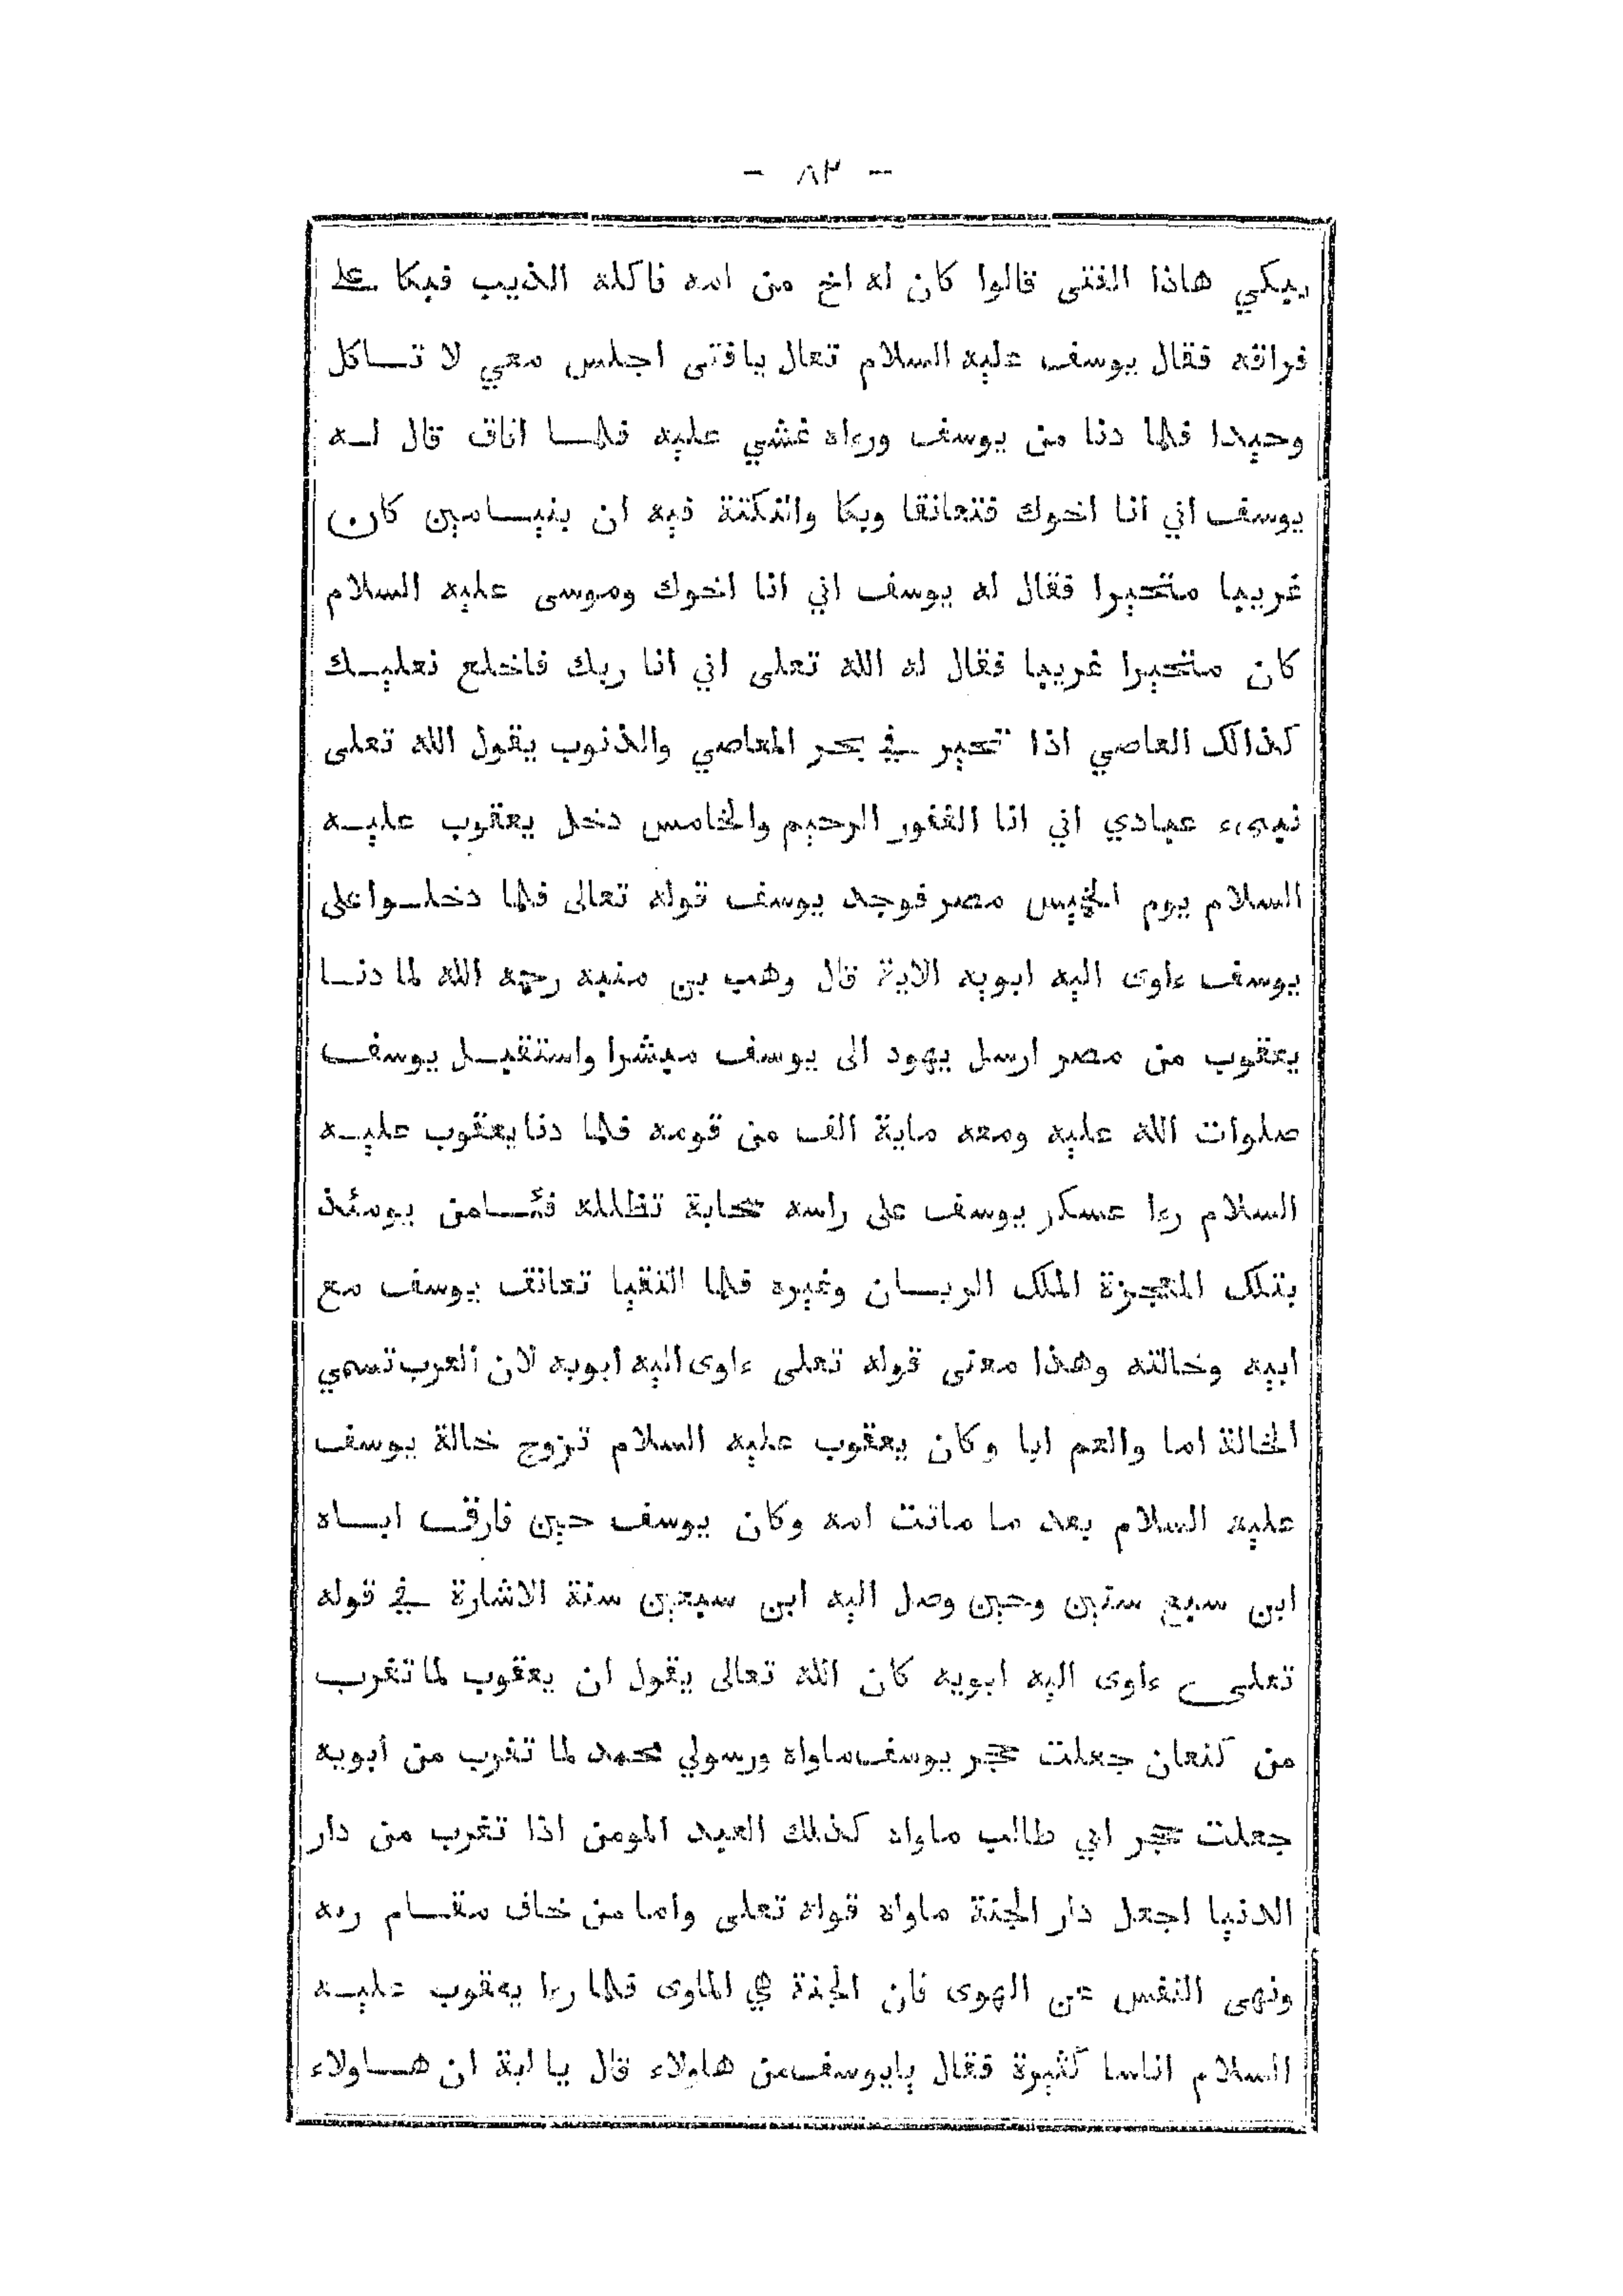 - ٨٣ -
يبكي هاذا الفتى قالوا كان له اخ من امه فاكله الذيب فبكا على
فراقه فقال يوسف عليه السلام تعال يافتى اجلس معي لا تــاكل
وحيدا فلما دنا من يوسف ورءاه غشي عليه فلمــا افاق قال لــه
يوسف اني انا اخوك فتعانقا وبكا والنكتة فيه ان بنيــامين كان
غريبا متحيرا فقال له يوسف اني انا اخوك وموسى عليه السلام
كان متحيرا غريبا فقال له الله تعلى اني انا ربك فاخلع نعليــك
كذالك العاصي اذا تحير في بحر المعاصي والذنوب يقول الله تعلى
نبىء عبادي اني انا الغفور الرحيم والخامس دخل يعقوب عليــه
السلام يوم الخميس مصر فوجد يوسف قوله تعالى فلما دخلــوا على
يوسف ءاوى اليه ابويه الاية قال وهب بن منبه رحمه الله لما دنــا
يعقوب من مصر ارسل يهود الى يوسف مبشرا واستقبــل يوسف
صلوات الله عليه ومعه ماية الف من قومه فلما دنا يعقوب عليــه
السلام رءا عسكر يوسف على راسه سحابة تظلله فئــامن يومئذ
بتلك المعجزة الملك الريــان وغيره فلما التقيا تعانق يوسف مع
ابيه وخالته وهذا معنى قوله تعلى ءاوى اليه ابويه لان العرب تسمي
الخالة اما والعم ابا وكان يعقوب عليه السلام تزوج خالة يوسف
عليه السلام بعد ما ماتت امه وكان يوسف حين فارق ابــاه
ابن سبع سنين وحين وصل اليه ابن سبعين سنة الاشارة في قوله
تعلى ءاوى اليه ابويه كان الله تعالى يقول ان يعقوب لما تغرب
من كنعان جعلت حجر يوسف ماواه ورسولي محمد لما تغرب من ابويه
جعلت حجر ابي طالب ماواه كذلك العبد المومن اذا تغرب من دار
الدنيا اجعل دار الجنة ماواه قوله تعلى واما من خاف مقــام ربه
ونهى النفس عن الهوى فان الجنة هي الماوى فلما رءا يعقوب عليــه
السلام اناسا كثيرة فقال يايوسف من هاولاء قال يا ابة ان هــاولاء